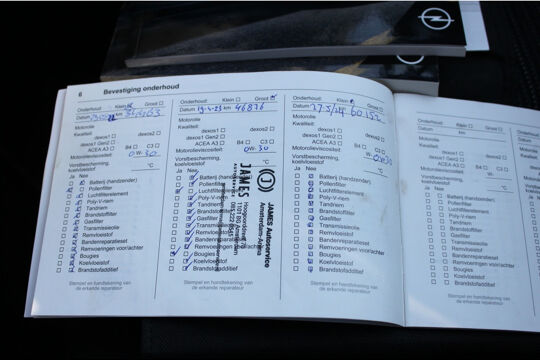 6 Bevestiging onderhoud
Onderhoud: Klein Groot
Datum km
Motorolie
Kwaliteit:
dexos1 dexos2
dexos1 Gen2
ACEA A3 B4 C3
Motorolieviscositeit 0W-30
Vorstbescherming,
koelvloeistof °C
Ja Nee
Batterij (handzender)
Pollenfilter
Luchtfilterelement
Poly-V-riem
Tandriem
Brandstoffilter
Gasfilter
Transmissieolie
Remvloeistof
Bandenreparatieset
Remvoeringen voor/achter
Bougies
Koelvloeistof
Brandstofadditief
Stempel en handtekening van
de erkende reparateur
Onderhoud: Klein Groot
Datum 19-4-23 km 46876
Motorolie
Kwaliteit:
dexos1 dexos2
dexos1 Gen2
ACEA A3 B4 C3
Motorolieviscositeit 0W-30
Vorstbescherming,
koelvloeistof °C
Ja Nee
Batterij (handzender)
Pollenfilter
Luchtfilterelement
Poly-V-riem
Tandriem
Brandstoffilter
Gasfilter
Transmissieolie
Remvloeistof
Bandenreparatieset
Remvoeringen
Bougies
Koelvloeistof
Brandstofadditief
JAMES
AUTOSERVICE
JAMES Autoservice
Amsterdam-Arena
Onderhoud: Klein Groot
Datum 27-5/24 60152
Motorolie
Kwaliteit:
dexos1 dexos2
dexos1 Gen2
ACEA A3 B4 C3
Motorolieviscositeit
0W30
Vorstbescherming,
koelvloeistof °C
Ja Nee
Batterij (handzender)
Pollenfilter
Luchtfilterelement
Poly-V-riem
Tandriem
Brandstoffilter
Gasfilter
Transmissieolie
Remvloeistof
Bandenreparatieset
Remvoeringen voor/achter
Bougies
Koelvloeistof
Brandstofadditief
Stempel en handtekening van
de erkende reparateur
Onderhoud: Klein Groot
Datum km
Motorolie
Kwaliteit:
dexos1 dexos2
dexos1 Gen2
ACEA A3 B4 C3
Motorolieviscositeit W-
Vorstbescherming,
koelvloeistof °C
Ja Nee
Batterij (handzender)
Pollenfilter
Luchtfilterelement
Poly-V-riem
Tandriem
Brandstoffilter
Gasfilter
Transmissieolie
Remvloeistof
Bandenreparatieset
Remvoeringen voor/achter
Bougies
Koelvloeistof
Brandstofadditief
Stempel en handtekening van
de erkende reparateur